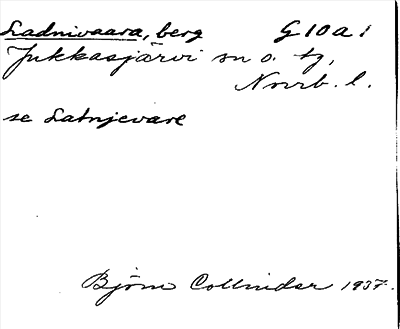 Ladnivaara, berg G 10 a 1
Jukkasjärvi sn o. tg,
Norrb. l.
se Latnjevare
Björn Collinder 1937.